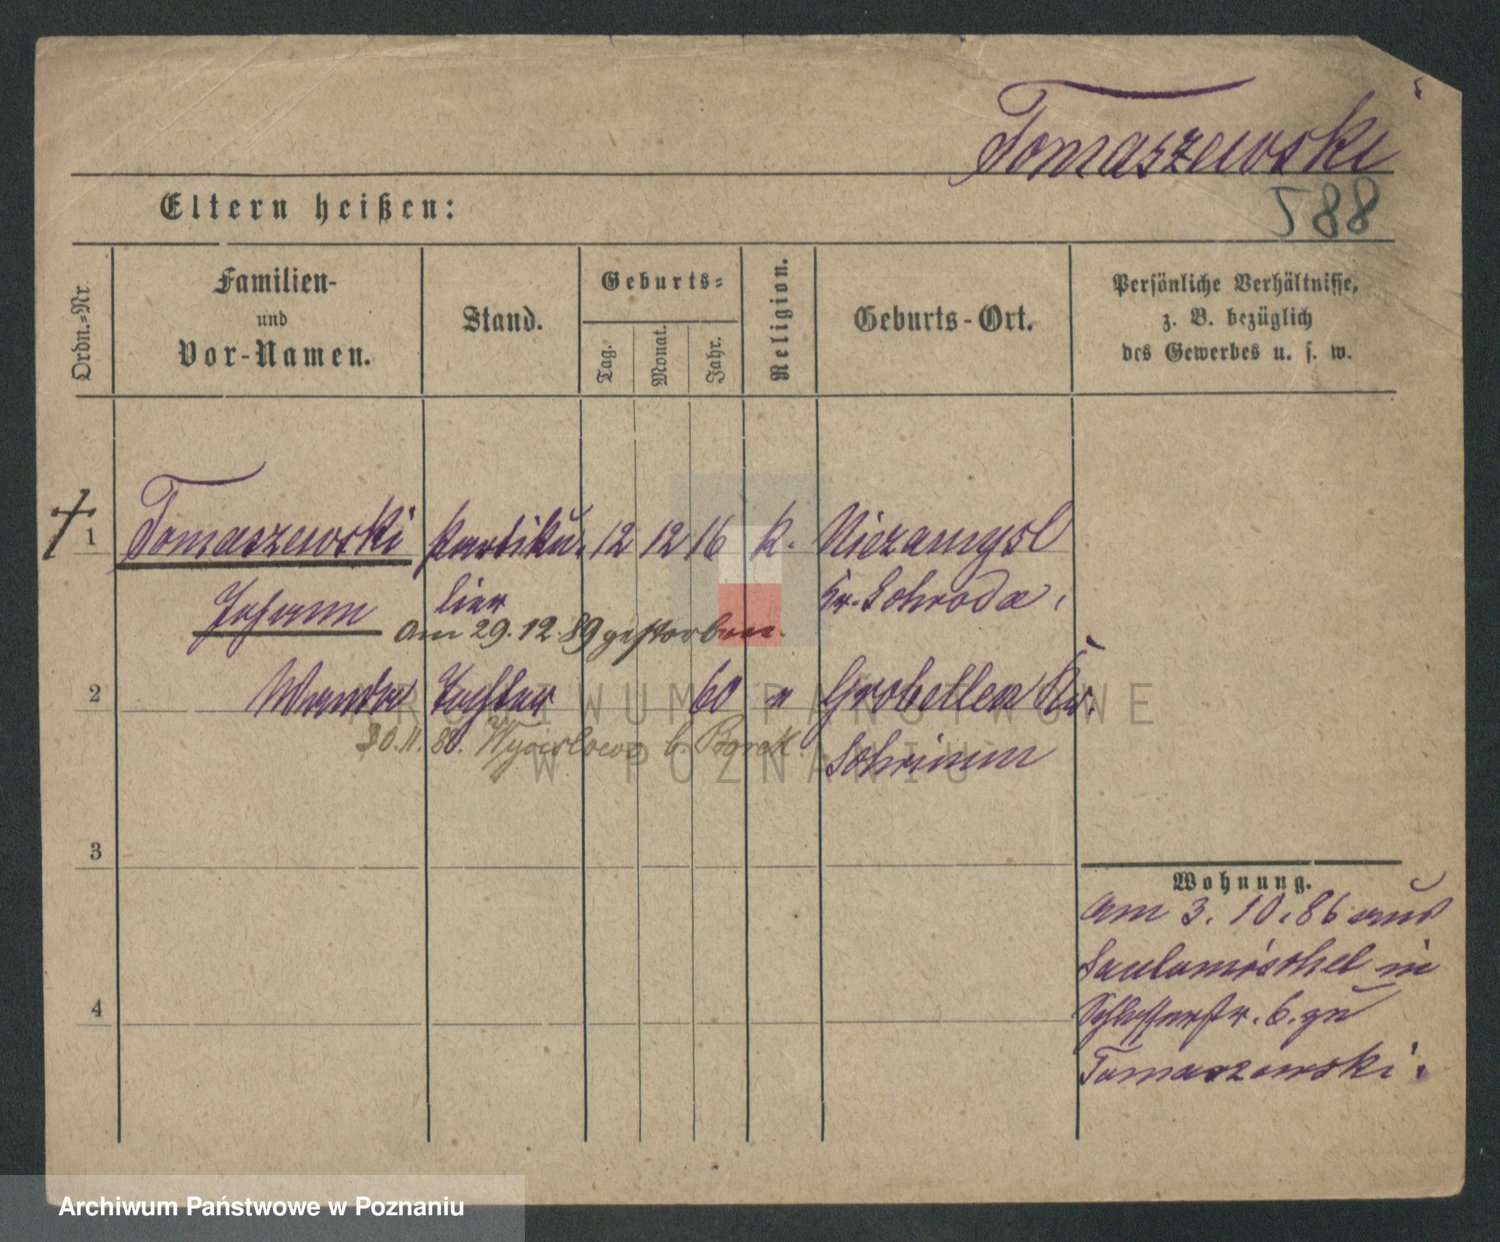 Tomaszewski
588
Eltern heißen:
Ordn.-Nr.
Familien-
und
Vor-Namen.
Stand.
Geburts-
Tag.
Monat.
Jahr.
Religion.
Geburts-Ort.
Persönliche Verhältnisse,
z. B. bezüglich
des Gewerbes u. s. w.
1 Tomaszewski Partiku- 12 12 16 k. Niezamysl
Johann lier Kr. Schroda.
am 29.12.89 gestorben.
2 Wanda Tochter 60 " Grobellen Kr.
30.11. Wycislowo b. Borek.
Schrimm
3
4
Wohnung.
am 3. 10. 86 aus
in
Schlosserstr. 6. zu
Tomaszewski.
ARCHIWUM PAŃSTWOWE
W POZNANIU
Archiwum Państwowe w Poznaniu